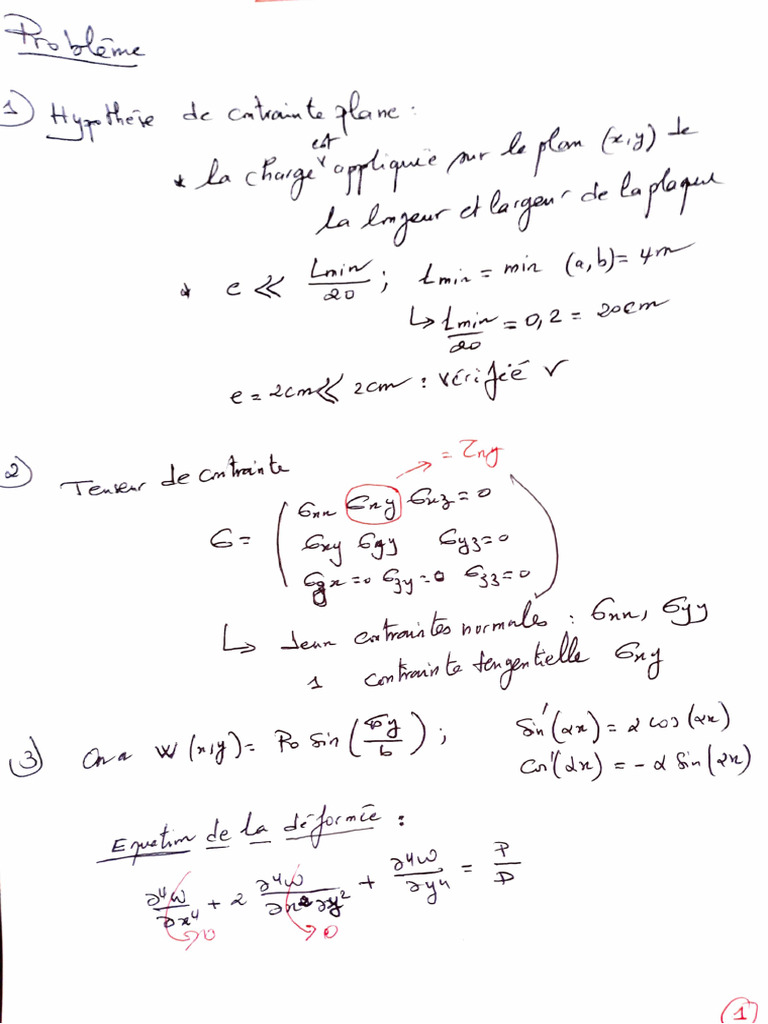 Problême
1) Hypothèse de contrainte plane :
* la charge est appliquée sur le plan (x,y) de
la longeur et largeur de la plaque
* e ≪ Lmin/20 ; Lmin = min (a,b) = 4m
↳ Lmin/20 = 0,2 = 20cm
e = 2cm ≪ 2cm : vérifié ✓
2) Tenseur de contrainte
= τxy
σxx σxy σxz = 0
σ = ( σxy σyy σyz = 0 )
σzx = 0 σzy = 0 σzz = 0
↳ deux contraintes normales : σxx, σyy
1 contrainte tengentielle σxy
3) On a W(x,y) = P0 sin(πy/b) ; sin'(αx) = α cos(αx)
cos'(αx) = -α sin(αx)
Equation de la déformée :
∂⁴w/∂x⁴ + 2 ∂⁴w/∂x²∂y² + ∂⁴w/∂y⁴ = P/D
→ 0 → 0
1